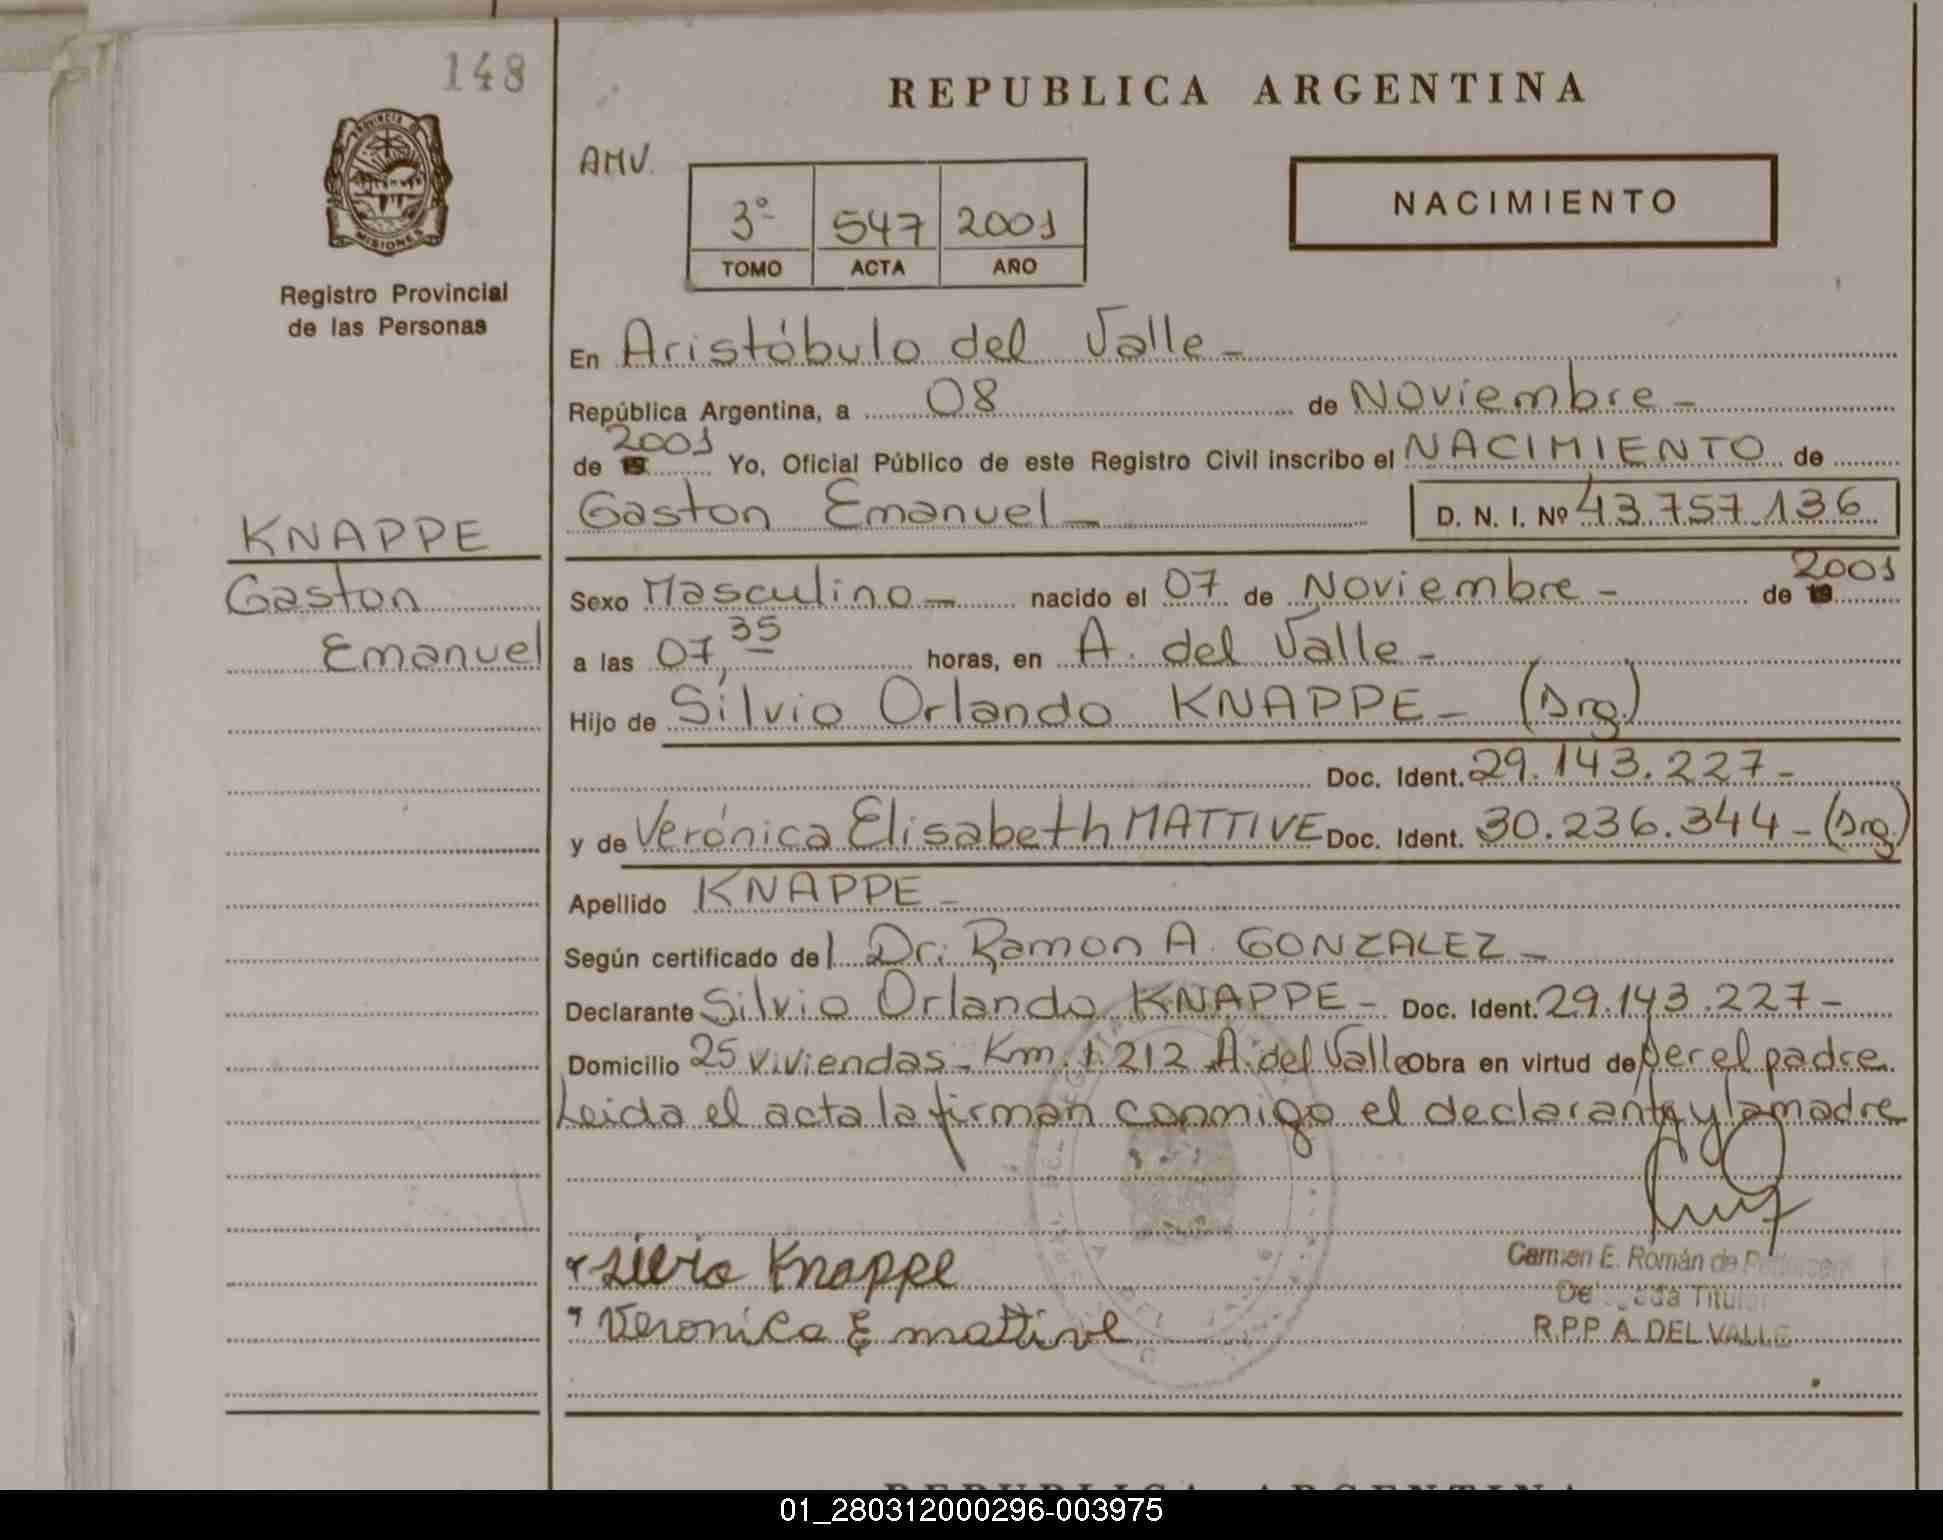 148
REPUBLICA ARGENTINA
AMV.
PROVINCIA DE
MISIONES
Registro Provincial
de las Personas
3º 547 2001
TOMO ACTA AÑO
NACIMIENTO
En Aristóbulo del Valle -
República Argentina, a 08 de Noviembre -
de 2001 Yo, Oficial Público de este Registro Civil inscribo el NACIMIENTO de
Gaston Emanuel - D. N. I. Nº 43.757.136
KNAPPE
Gaston
Emanuel
Sexo Masculino - nacido el 07 de Noviembre - de 2001
a las 07,35 horas, en A. del Valle -
Hijo de Silvio Orlando KNAPPE - (Arg.)
Doc. Ident. 29.143.227 -
y de Verónica Elisabeth MATTIVE Doc. Ident. 30.236.344 - (Arg.)
Apellido KNAPPE -
Según certificado del Dr. Ramon A. GONZALEZ -
Declarante Silvio Orlando KNAPPE - Doc. Ident. 29.143.227 -
Domicilio 25 viviendas - Km. 1.212 A. del Valle Obra en virtud de ser el padre
Leida el acta la firman conmigo el declarante y la madre
Silvio Knappe
Veronica E mattive
Carmen E. Román de
Titular
R.P.P. A. DEL VALLE
REPUBLICA ARGENTINA
01_280312000296-003975